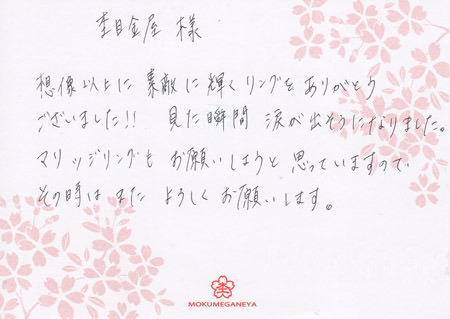 杢目金屋 様
想像以上に素敵に輝くリングを ありがとう
ございました!! 見た瞬間 涙が出そうになりました。
マリッジリングも お願いしようと 思っていますので
その時は また よろしく お願いします。
MOKUMEGANEYA